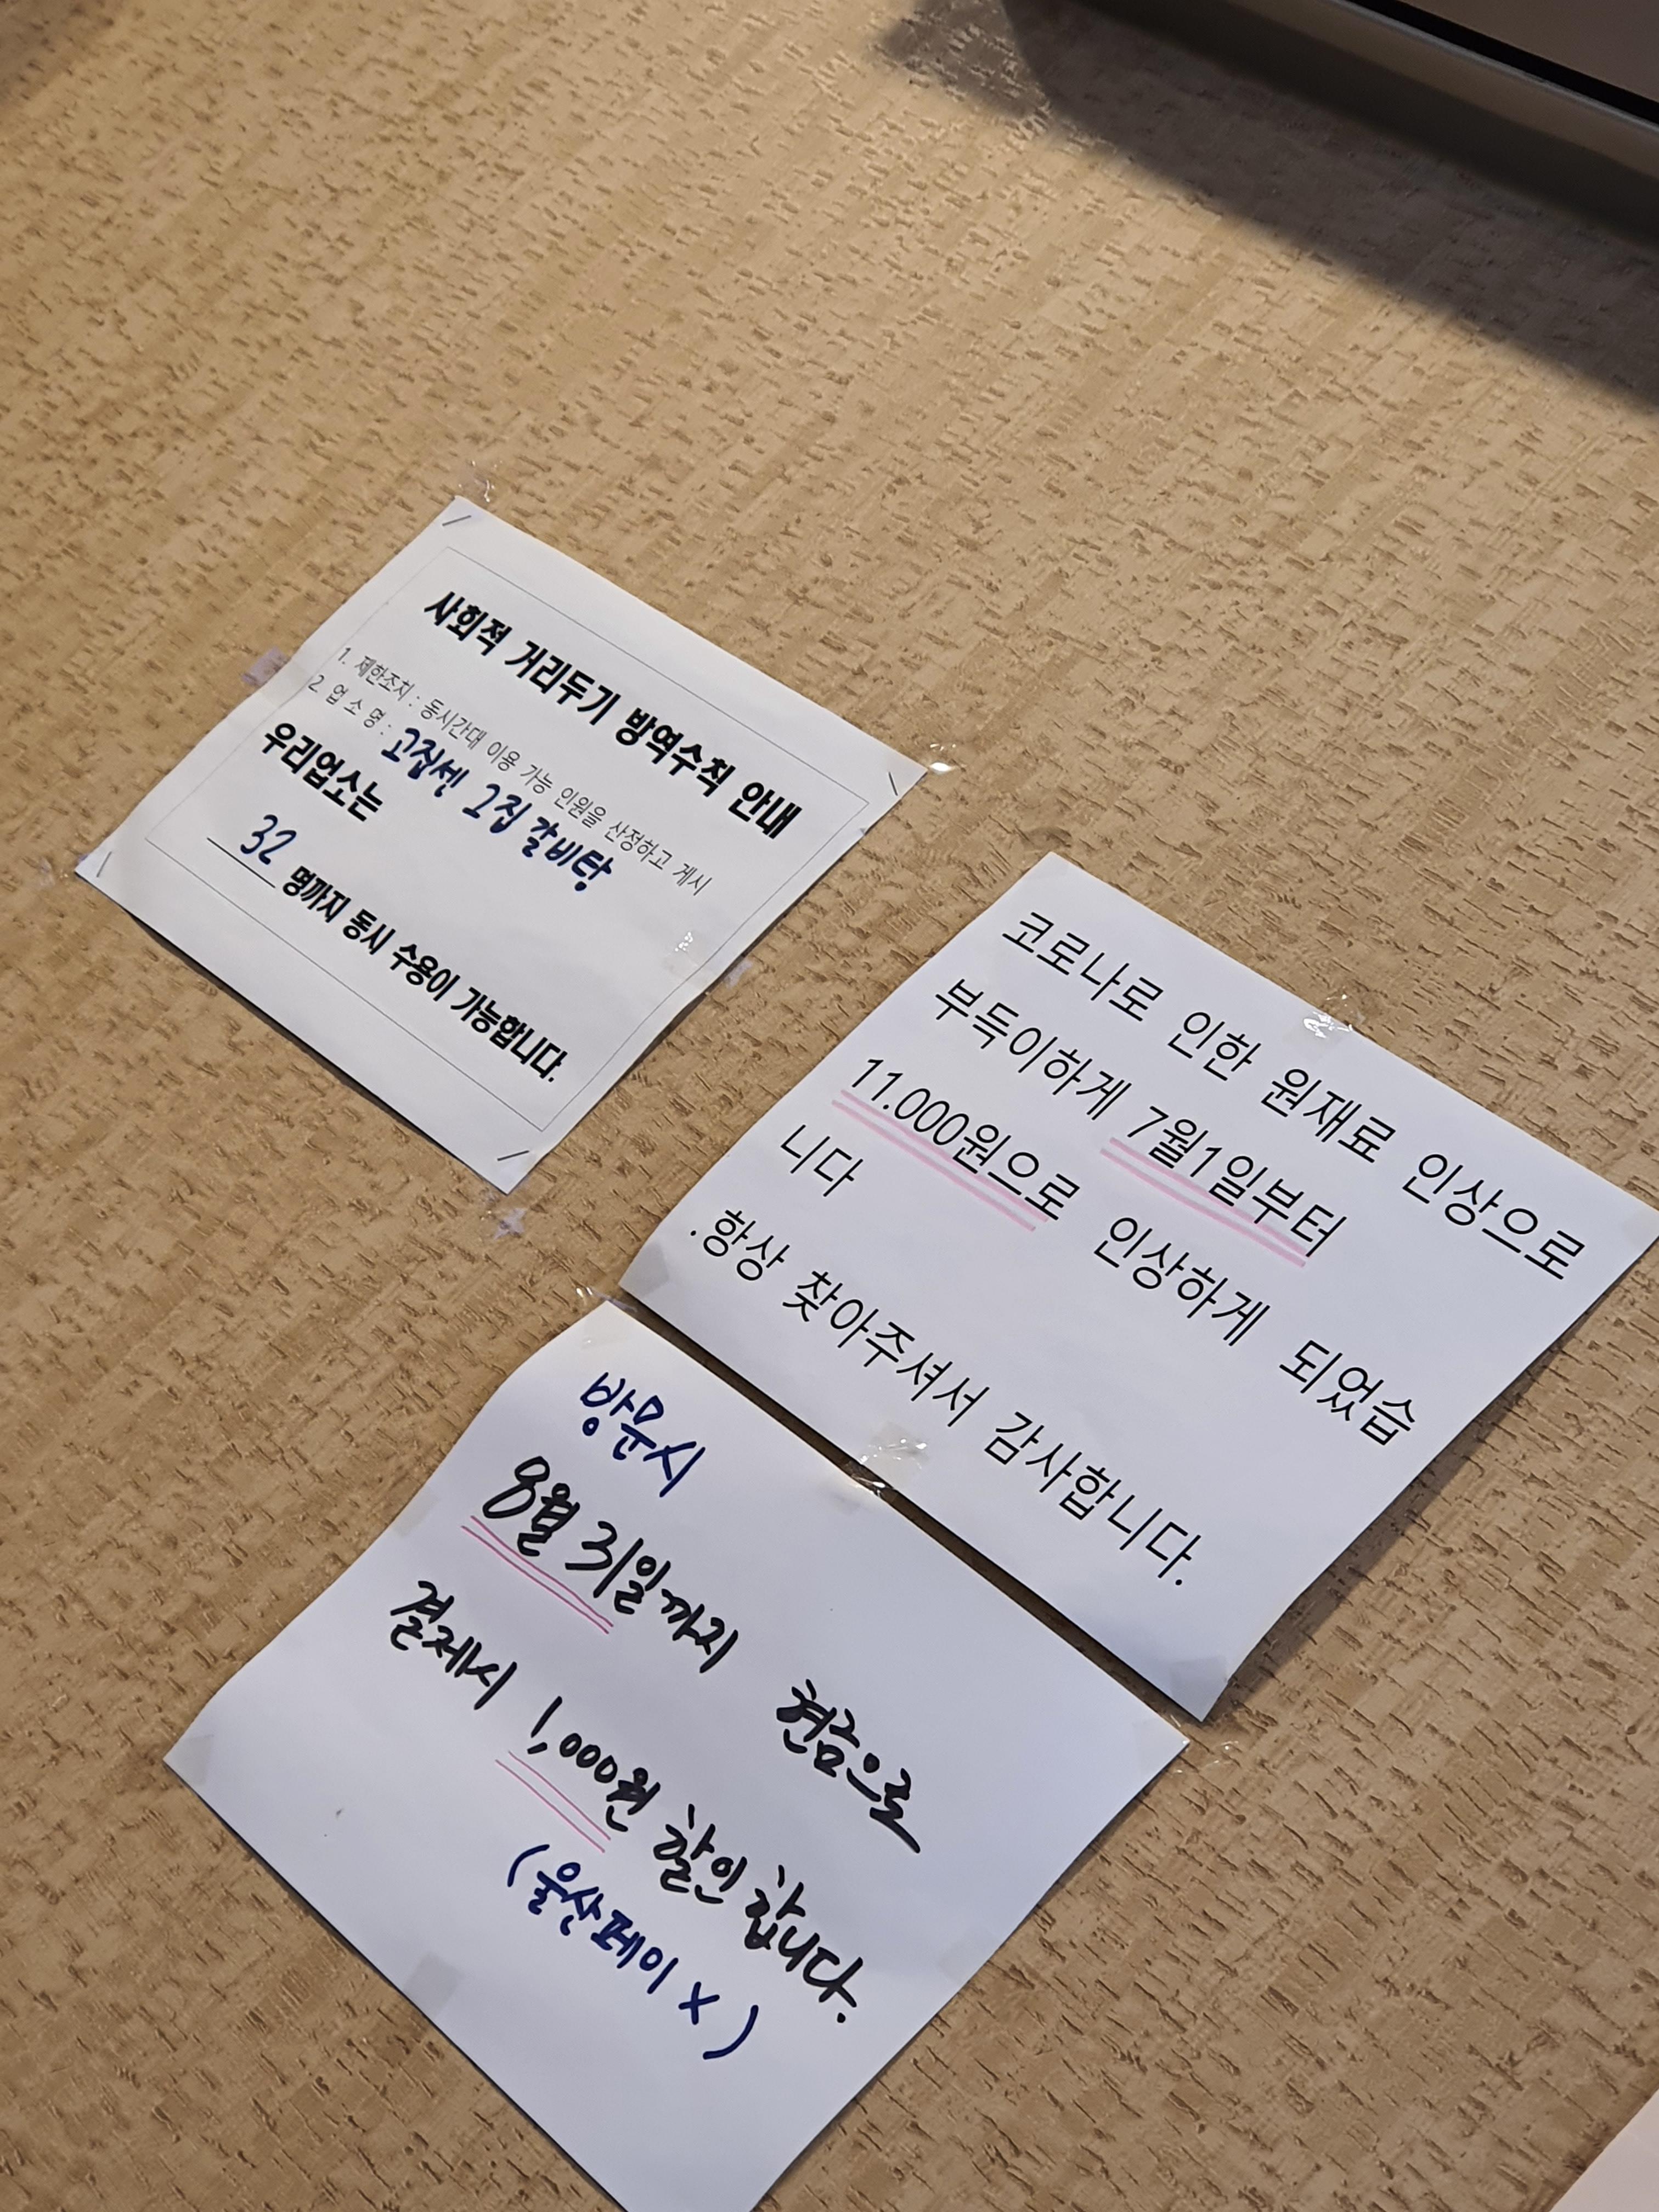 사회적 거리두기 방역수칙 안내
1. 제한조치 : 동시간대 이용 가능 인원을 산정하고 게시
2. 업 소 명 : 고집센 그집 갈비탕
우리업소는
32 명까지 동시 수용이 가능합니다.
코로나로 인한 원재료 인상으로
부득이하게 7월1일부터
11.000원으로 인상하게 되었습
니다
.항상 찾아주셔서 감사합니다.
방문시
8월 31일까지 현금으로
결제시 1,000원 할인 합니다.
(울산페이 x)